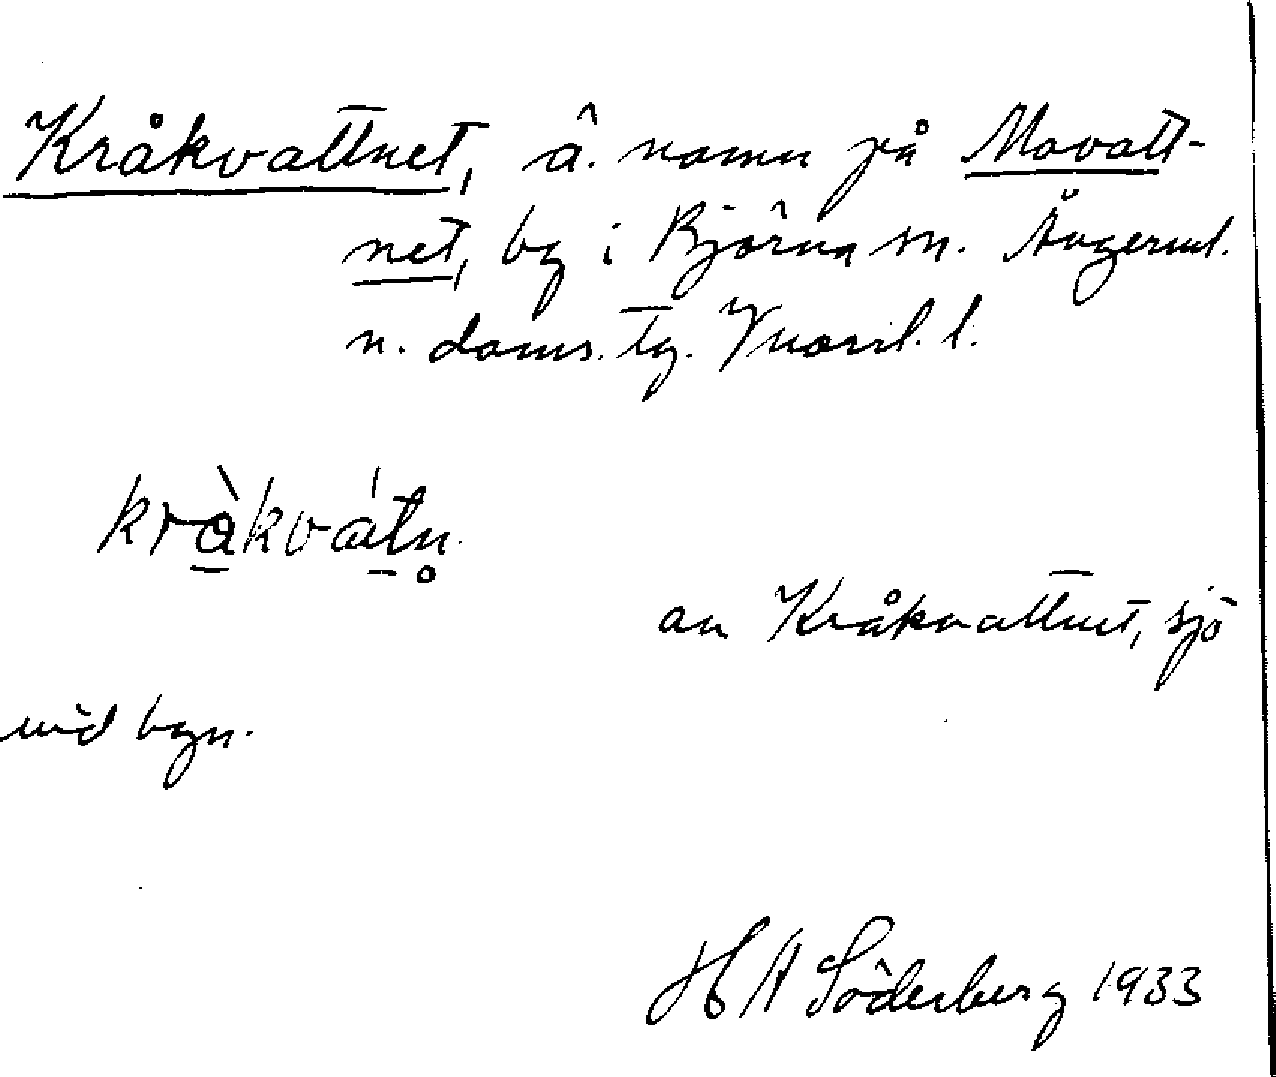 Kråkvattnet, ä. namn på Movatt-
net, by i Björna sn. Ångerml.
n. doms. tg. Vnorrl. l.
kråkvatn
av Kråkvattnet, sjö
vid byn.
H A Söderberg 1933